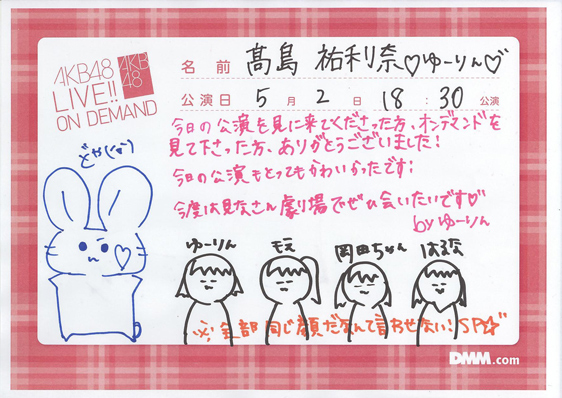 AKB48
LIVE!!
ON DEMAND
AKB
48
名前 髙島 祐利奈♡ゆーりん♡
公演日 5月2日 18:30公演
今日の公演を見に来てくださった方、オンデマンドを
見て下さった方、ありがとうございました!
今日の公演もとってもかわいかったです!
今度は見なさん劇場でぜひ会いたいです♡
byゆーりん
どや(笑)
ゆーりん
もえ
岡田ちゃん
はるな
※全部同じ顔だなんて言わせない!SP☆
DMM.com